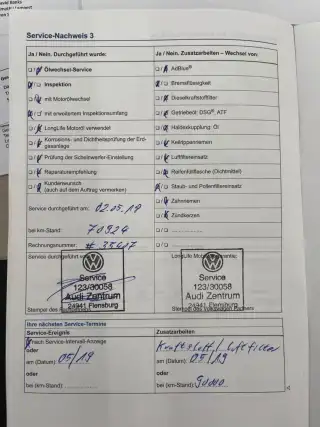 Service-Nachweis 3
Ja / Nein. Durchgeführt wurde:
Ölwechsel-Service
Inspektion
mit Motorölwechsel
mit erweitertem Inspektionsumfang
LongLife Motoröl verwendet
Korrosions- und Dichtheitsprüfung der Erdgasanlage
Prüfung der Scheinwerfer-Einstellung
Reparaturempfehlung
Kundenwunsch
(auch auf dem Auftrag vermerken)
Service durchgeführt am: 02.05.19
bei km-Stand: 70924
Rechnungsnummer:
Service durchgeführt
Service
123/30058
Audi Zentrum
24941 Flensburg
Ja / Nein. Zusatzarbeiten – Wechsel von:
AdBlue®
Bremsflüssigkeit
Dieselkraftstofffilter
Getriebeöl: DSG®, ATF
Haldexkupplung: Öl
Keilrippenriemen
Luftfiltereinsatz
Reifenfüllflasche (Dichtmittel)
Staub- und Pollenfiltereinsatz
Zahnriemen
Zündkerzen
LongLife Mobilitätsgarantie:
Service
123/30058
Audi Zentrum
24941 Flensburg
Ihre nächsten Service-Termine
Service-Ereignis
nach Service-Intervall-Anzeige
oder
am (Datum): 05/19
oder
bei (km-Stand):
Zusatzarbeiten:
Kraftstoff / Luftfilter
am (Datum): 05/19
oder
bei (km-Stand): 90000